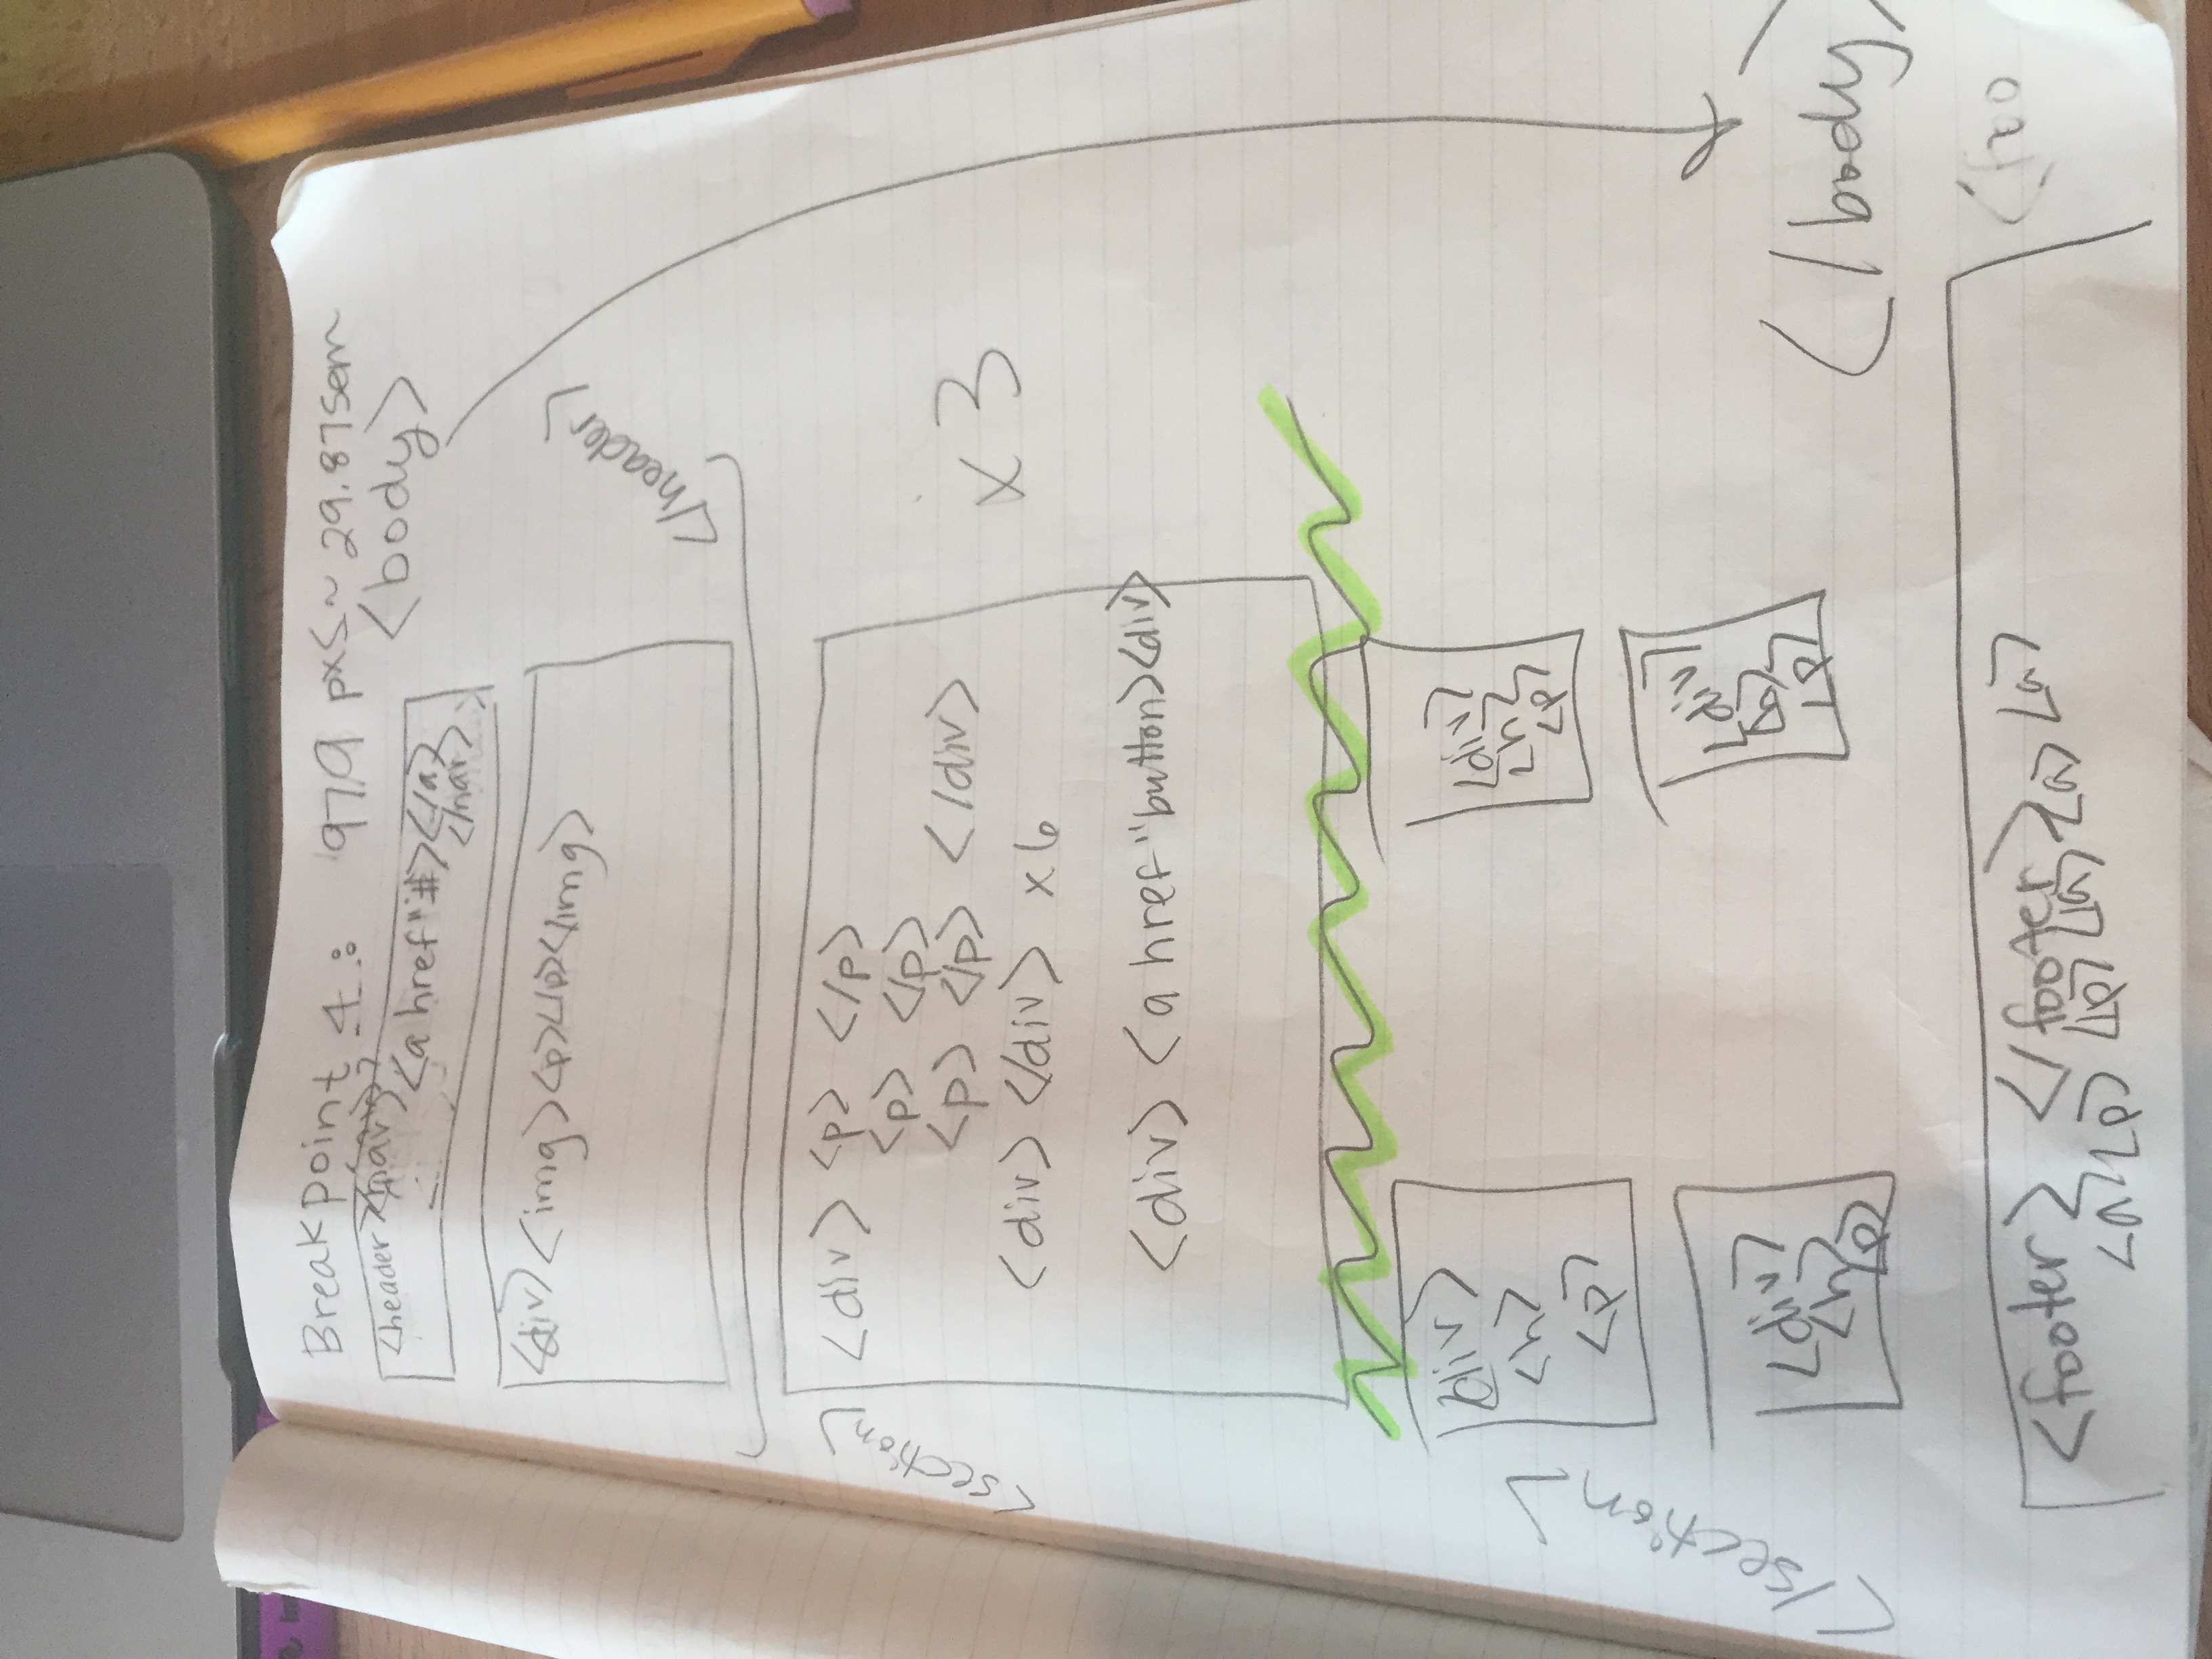 Breakpoint 4: 979 px≤~ 29.875em
<body>
<header><nav>
<a href"#></a>
</nav>
<div><img><p></p></img>
</header>
<section>
<div> <p> </p>
<p> </p>
<p> </p> </div>
<div></div> x6
x3
<div> <a href"button><div>
<div>
<h>
<p>
<div>
<h>
<p>
</section>
<div>
<h>
<p>
<div>
<h>
<p>
</body>
<footer> </footer>
<a><p>
<a><a>
<foo